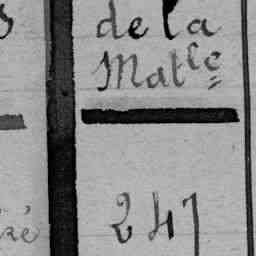 de la
Mat^le
247